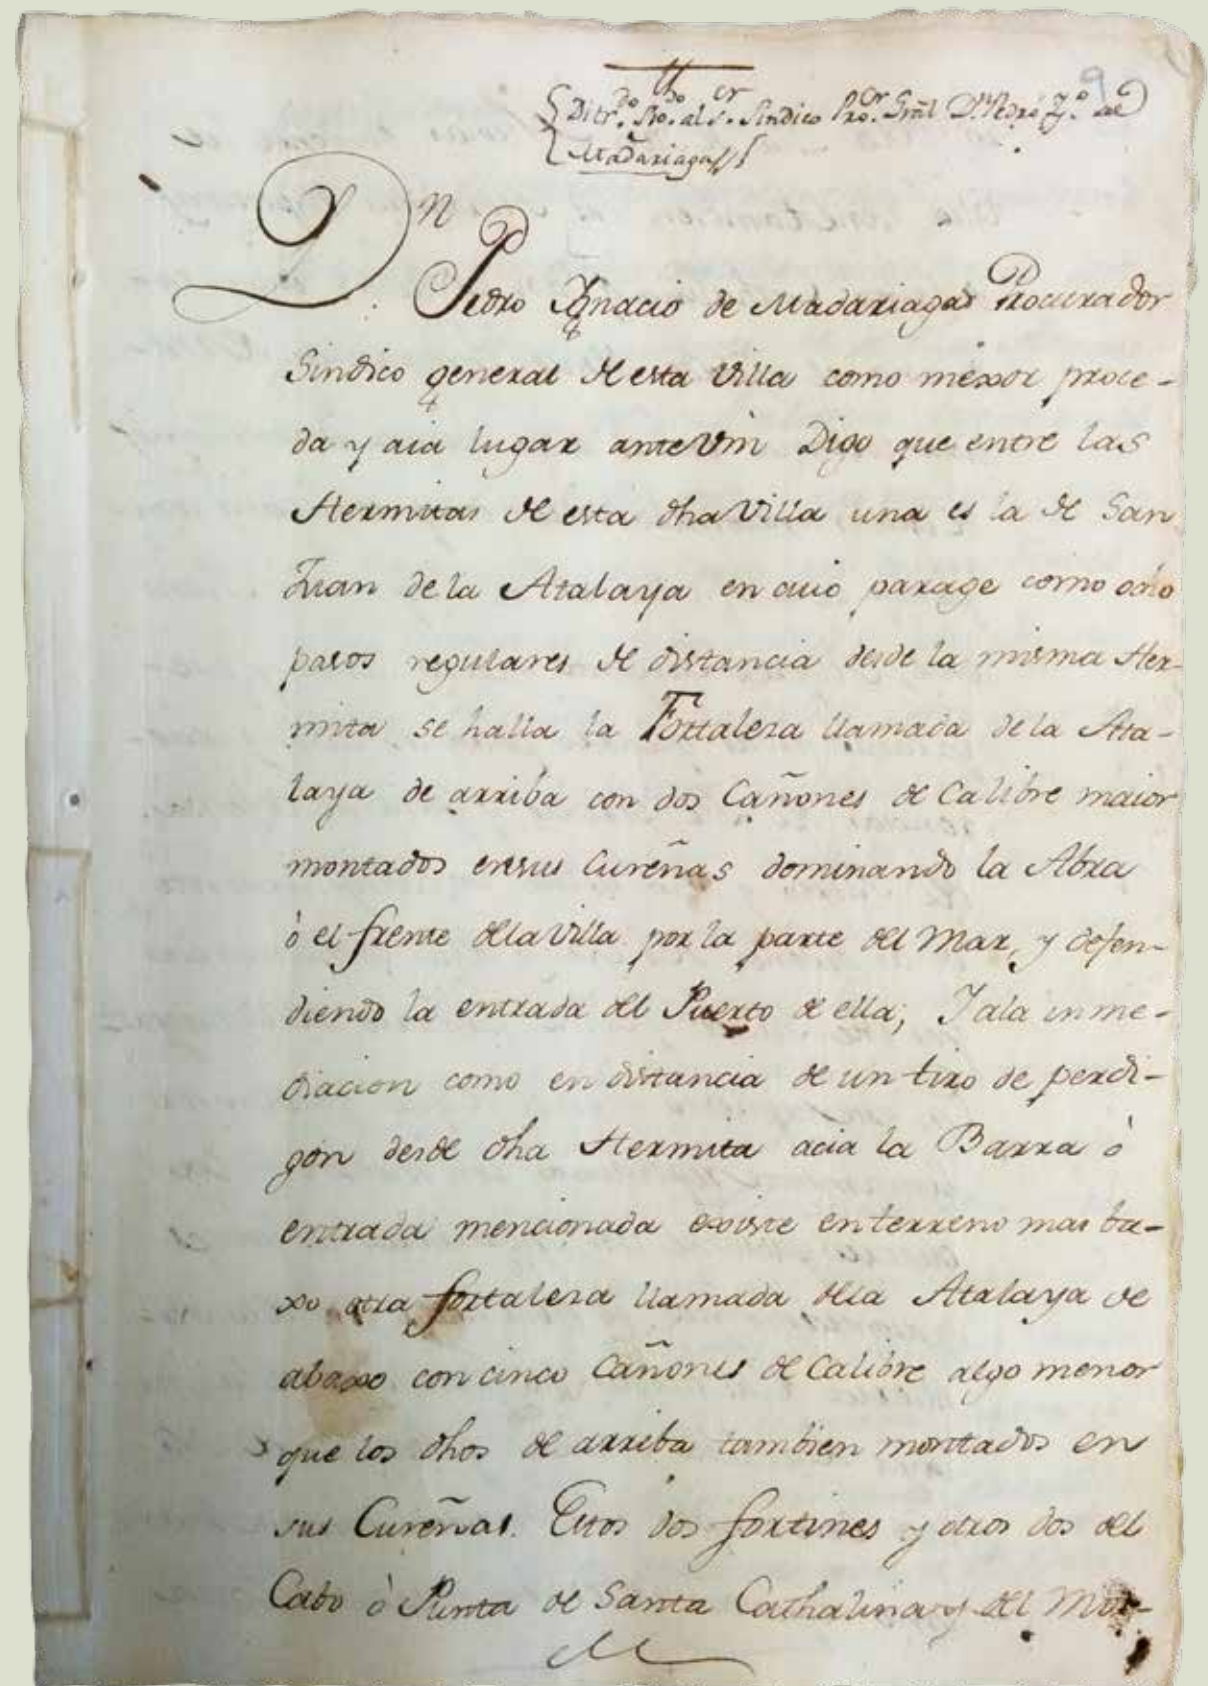 al S.r Sindico Pro.or Gral D.n Pedro Y.o de
Madariaga
Dn
Pedro Ygnacio de Madariaga Procurador
Sindico general de esta Villa como mexor proce-
da y aia lugar ante Vm Digo que entre las
Hermitas de esta dha Villa una es la de San
Juan de la Atalaya en cuio parage como ocho
pasos regulares de distancia desde la misma Her-
mita se halla la Fortaleza llamada de la Ata-
laya de arriba con dos Cañones de Calibre maior
montados en sus Cureñas dominando la Abra
ò el frente de la Villa por la parte del Mar, y defen-
diendo la entrada del Puerto de ella; Y a la inme-
diacion como en distancia de un tiro de perdi-
gon desde dha Hermita acia la Barra ò
entrada mencionada existe en terreno mas ba-
xo otra fortaleza llamada de la Atalaya de
abaxo con cinco Cañones de Calibre algo menor
que los dhos de arriba tambien montados en
sus Cureñas. Estos dos fortines y otros dos del
Cabo ò Punta de Santa Cathalina y del